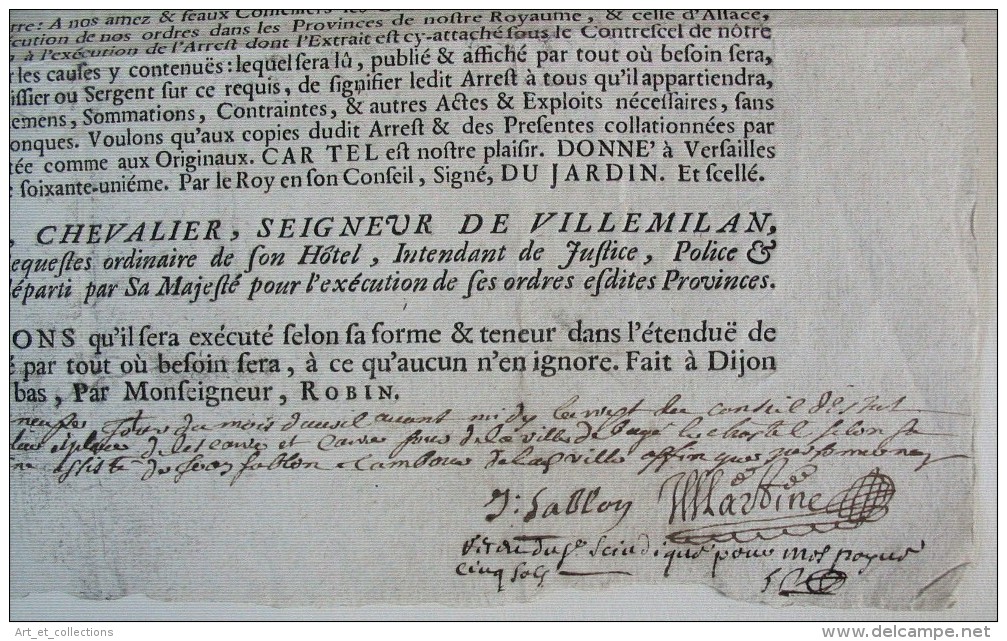 tre: A nos amez & feaux Conseillers les
cution de nos ordres dans les Provinces de nostre Royaume, & celle d'Alsace,
à l'exécution de l'Arrest dont l'Extrait est cy-attaché sous le Contrescel de nôtre
les causes y contenuës: lequel sera lû, publié & affiché par tout où besoin sera,
issier ou Sergent sur ce requis, de signifier ledit Arrest à tous qu'il appartiendra,
emens, Sommations, Contraintes, & autres Actes & Exploits nécessaires, sans
onques. Voulons qu'aux copies dudit Arrest & des Presentes collationnées par
tée comme aux Originaux. CAR TEL est nostre plaisir. DONNE' à Versailles
soixante-uniéme. Par le Roy en son Conseil, Signé, DU JARDIN. Et scellé.
, CHEVALIER, SEIGNEUR DE VILLEMILAN,
equestes ordinaire de son Hôtel, Intendant de Justice, Police &
départi par Sa Majesté pour l'exécution de ses ordres esdites Provinces.
ONS qu'il sera exécuté selon sa forme & teneur dans l'étenduë de
par tout où besoin sera, à ce qu'aucun n'en ignore. Fait à Dijon
bas, Par Monseigneur, ROBIN.
Jour du mois d'avril avant midy du conseil d'estat
et de la ville de bagé le chastel selon
assisté de Jean sablon tambour de la ville affin que
J: Sablon Martine
scindique pour mes
cinq sols
Art_et_collections
www.delcampe.net